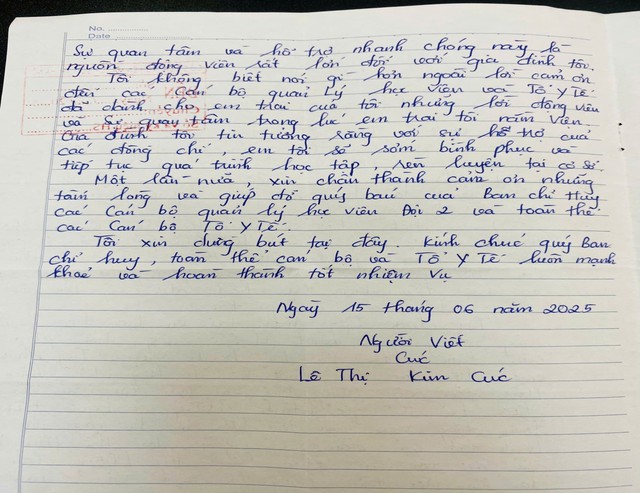 No.
Date
Sự quan tâm và hỗ trợ nhanh chóng này là
nguồn động viên rất lớn đối với gia đình tôi.
Tôi không biết nói gì hơn ngoài lời cảm ơn
đến các Cán bộ quản lý học viên và Tổ Y Tế
đã dành cho em trai của tôi những lời động viên
và Sự quan tâm trong lúc em trai tôi nằm Viện.
Gia đình tôi tin tưởng rằng với sự hỗ trợ của
các đồng chí, em tôi sẽ sớm bình phục và
tiếp tục quá trình học tập rèn luyện tại cơ sở.
Một lần nữa, xin chân thành cảm ơn những
tấm lòng và giúp đỡ quý báu của Ban chỉ Huy
các Cán bộ quản lý học viên Đội 2 và toàn thể
các Cán bộ Tổ Y Tế.
Tôi xin dừng bút tại đây. Kính chúc quý Ban
chỉ huy, toàn thể cán bộ và Tổ Y Tế luôn mạnh
khoẻ và hoàn thành tốt nhiệm vụ
Ngày 15 tháng 06 năm 2025
Người Viết
Cúc
Lê Thị Kim Cúc